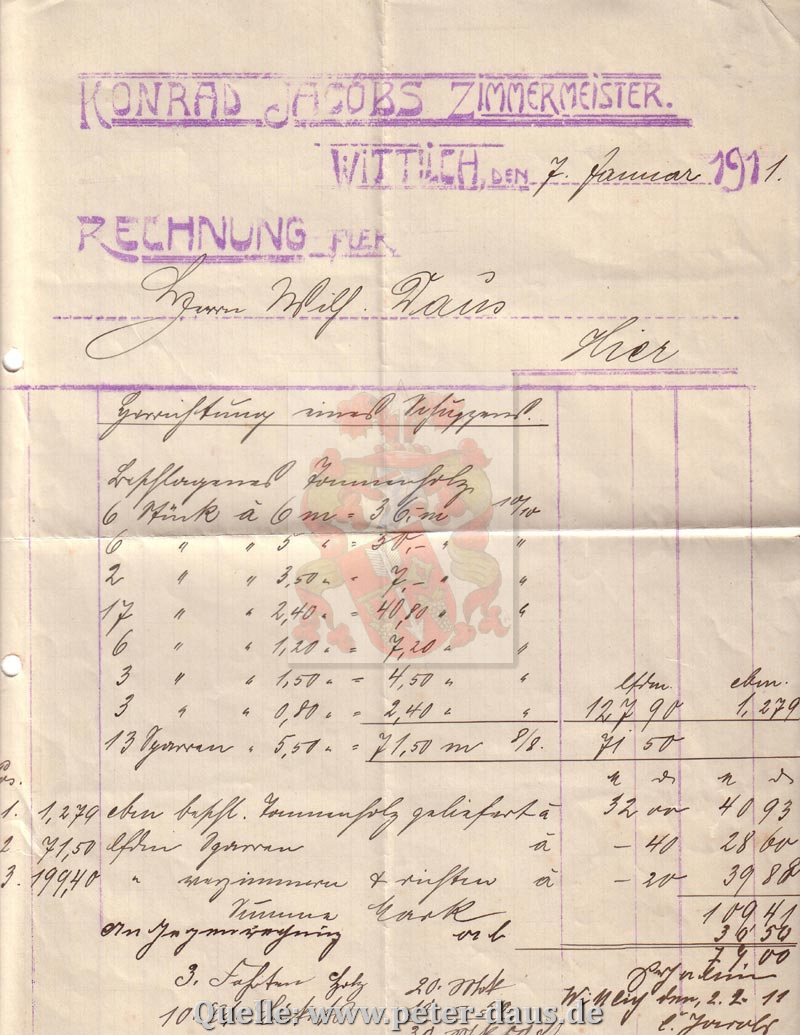 KONRAD JACOBS ZIMMERMEISTER.
WITTLICH, DEN 7. Januar 1911.
RECHNUNG FUER
Herrn Wilh. Daus
Hier
Herrichtung eines Schuppens.
Beschlagenes Tannenholz
6 Stück à 6 m = 36,- m 10/10
6 " " 5 " = 30,- " "
2 " " 3,50 " = 7,- " "
17 " " 2,40 " = 40,80 " "
6 " " 1,20 " = 7,20 " "
3 " " 1,50 " = 4,50 " " lfdm. cbm.
3 " " 0,80 " = 2,40 " " 127 90 1,279
13 Sparren " 5,50 " = 71,50 m 8/8. 71 50
Pos. M d M d
1. 1,279 cbm beschl. Tannenholz geliefert à 32 00 40 93
2 71,50 lfdm Sparren à - 40 28 60
3. 199,40 " verzimmern & richten à - 20 39 88
Summe Mark 109 41
An Gegenrechnung ab 30 50
79 00
3. Fahrten Holz 20. Mk
Wittlich den, 2.2. 11
10.
C. Jacobs
Quelle: www.peter-daus.de